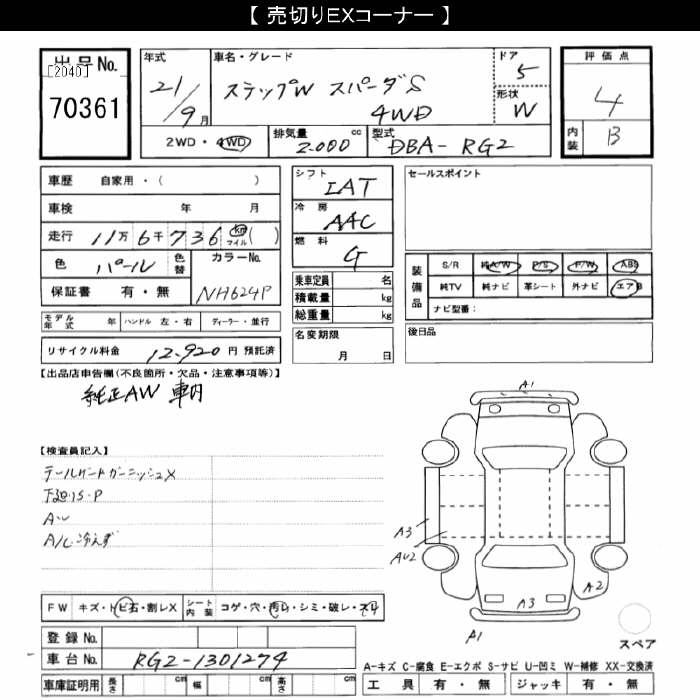 【 売切りEXコーナー 】
出品No.
[2040]
70361
年式
21/9月
車名・グレード
ステップW スパーダS
4WD
ドア
5
形状
W
評価点
4
内装
B
2WD・4WD
排気量
2.000 cc
型式
DBA-RG2
車歴 自家用・( )
車検 年 月
走行 11万6千736 km マイル ( )
色 パール 色替
カラーNo.
NH624P
保証書 有・無
シフト
IAT
冷房
AAC
燃料
G
乗車定員 名
積載量 kg
総重量 kg
セールスポイント
装備品
S/R 純A/W P/S P/W ABS
純TV 純ナビ 革シート 外ナビ エアB
ナビ型番：
モデル年式 ハンドル 左・右 ディーラー・並行
リサイクル料金 12.920 円 預託済
名変期限
月 日
後日品
【出品店申告欄(不良箇所・欠品・注意事項等)】
純正AW 車内
【検査員記入】
テールゲートガーニッシュX
下廻りS・P
A~
A/C冷えず
A1
A3
AU2
A2
A3
A1
スペア
FW キズ・トビ石・割レX
シート内装 コゲ・穴・汚レ・シミ・破レ・スリ
登録No.
車台No. RG2-1301274
車庫証明用 長さ cm 幅 cm 高さ cm
A-キズ C-腐食 E-エクボ S-サビ U-凹ミ W-補修 XX-交換済
工具 有・無 ジャッキ 有・無